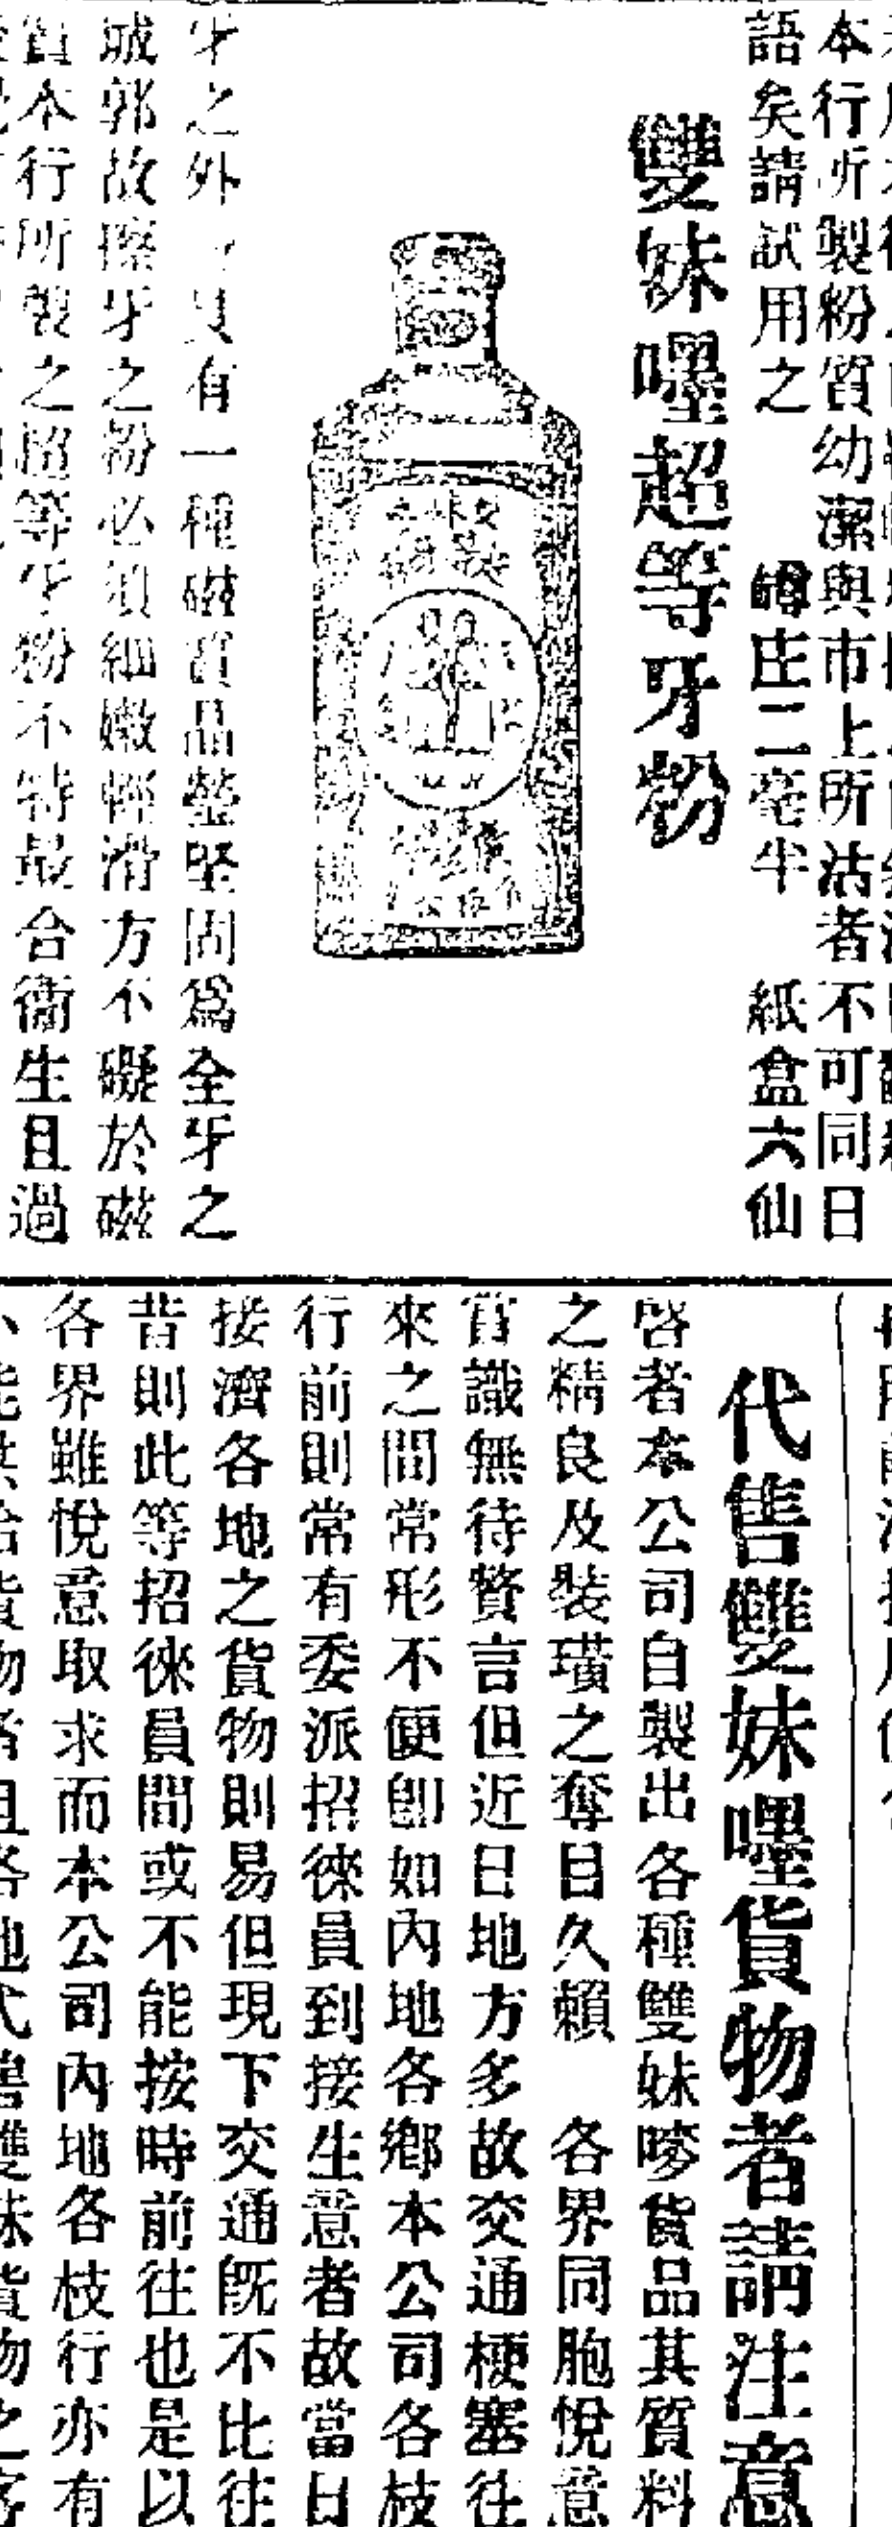 本行所製粉質幼潔與市上所沽者不可同日
語矣請試用之 罇庄二毫半 紙盒六仙
雙妹嚜超等牙粉
牙之外 有一種磁質品瑩堅固為全牙之
城郭故擦牙之粉必須細嫩輕滑方不礙於磁
質本行所製之超等牙粉不特最合衛生且過
代售雙妹嚜貨物者請注意
啓者本公司自製出各種雙妹嘜貨品其質料
之精良及裝璜之奪目久賴 各界同胞悅意
賞識無待贅言但近日地方多故交通梗塞往
來之間常形不便卽如內地各鄉本公司各枝
行前則常有委派招徠員到接生意者故當日
接濟各地之貨物則易但現下交通旣不比往
昔則此等招徠員間或不能按時前往也是以
各界雖悅意取求而本公司內地各枝行亦有